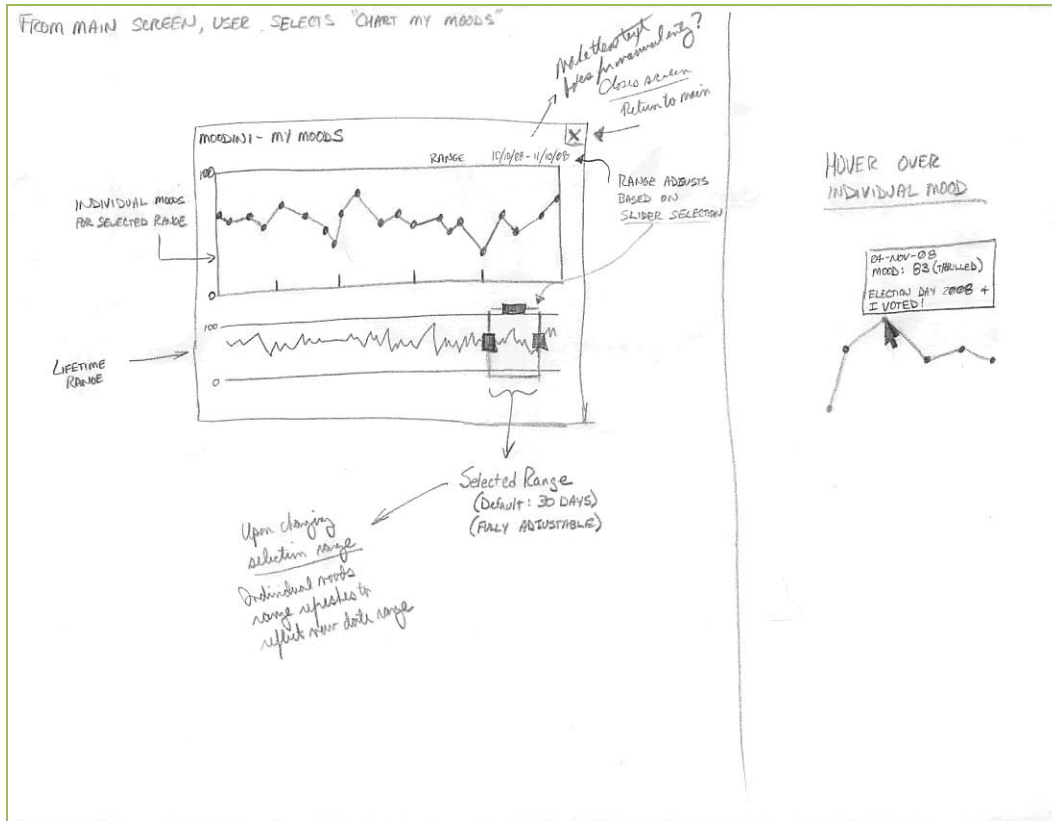 FROM MAIN SCREEN, USER SELECTS "CHART MY MOODS"
Make these text
boxes for manual entry?
Closes screen
Return to main
MOODINI - MY MOODS
X
RANGE 10/10/08 - 11/10/08
100
0
INDIVIDUAL MOODS
FOR SELECTED RANGE
RANGE ADJUSTS
BASED ON
SLIDER SELECTION
100
0
LIFETIME
RANGE
Selected Range
(Default: 30 DAYS)
(FULLY ADJUSTABLE)
Upon changing
selection range
Individual moods
range refreshes to
reflect new date range
HOVER OVER
INDIVIDUAL MOOD
04-NOV-08
MOOD: 83 (THRILLED)
ELECTION DAY 2008 +
I VOTED!